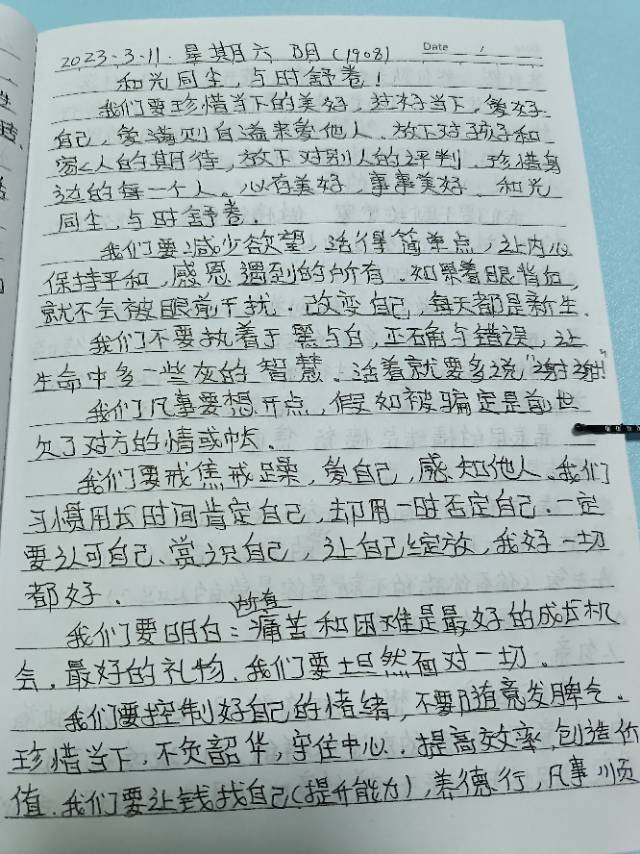 2023.3.11. 星期六 阴 (1908) Date /
和光同尘,与时舒卷!
我们要珍惜当下的美好,过好当下,爱好
自己,爱满则自溢来爱他人。放下对孩子和
家人的期待,放下对别人的评判,珍惜身
边的每一个人。心存美好,事事美好。和光
同尘,与时舒卷。
我们要减少欲望,活得简单点,让内心
保持平和,感恩遇到的所有。如果着眼背后,
就不会被眼前干扰。改变自己,每天都是新生。
我们不要执着于黑与白,正确与错误,让
生命中多一些灰的智慧。活着就要多说“谢谢!”
我们凡事要想开点,假如被骗定是前世
欠了对方的情或帐。
我们要戒焦戒躁,爱自己,感知他人。我们
习惯用长时间肯定自己,却用一时否定自己。一定
要认可自己、赏识自己,让自己绽放,我好一切
都好。
我们要明白:所有痛苦和困难是最好的成长机
会,最好的礼物。我们要坦然面对一切。
我们要控制好自己的情绪,不要随意发脾气。
珍惜当下,不负韶华,守住中心。提高效率,创造价
值。我们要让钱找自己(提升能力),养德行,凡事顺